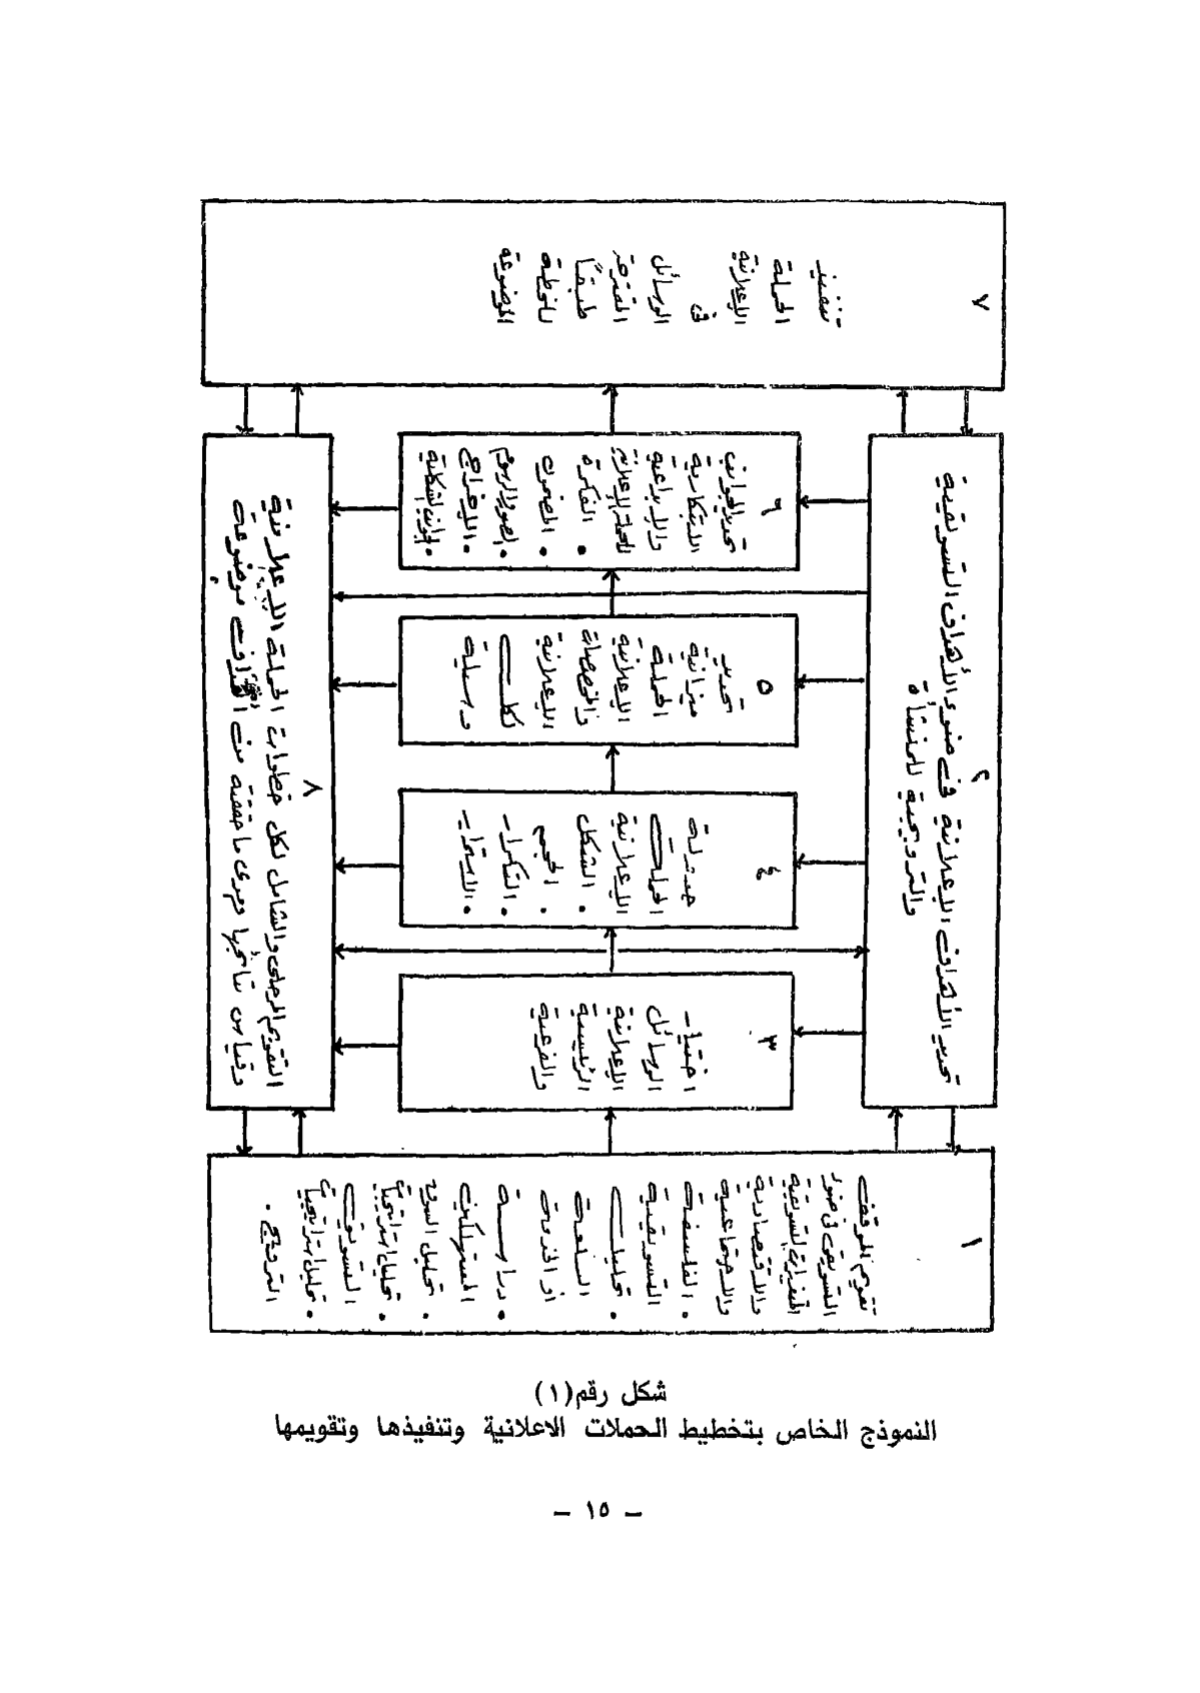 ١
تقويم الموقف
التسويقى فى ضوء
المتغيرات التسويقية
والاقتصادية
والاجتماعية
• الفلسفة
التسويقية
• تحليل
السلعة
أو الخدمة
• دراسة
المستهلكين
• تحليل السوق
• تحليل استراتيجيات
التسويق
• تحليل استراتيجيات
الترويج .
٢
تحديد الأهداف الإعلانية فى ضوء الأهداف التسويقية
والترويجية للمنشأة
٣
اختيار
الوسائل
الإعلانية
الرئيسية
والفرعية
٤
جدولة
الحملة
الإعلانية
• الشكل
• الحجم
• التكرار
• الاستمرار
٥
تحديد
ميزانية
الحملة
الإعلانية
والمخصصات
الإعلانية
لكل
وسيلة
٦
تحديد الجوانب
الابتكارية
والإبداعية
للحملة الإعلانية
• الفكرة
• المضمون
• الصور والرسوم
• الإخراج
• الجوانب الشكلية
٧
تنفيذ
الحملة
الإعلانية
فى
الوسائل
المقترحة
طبقاً
للخطة
الموضوعة
٨
التقويم المرحلى والشامل لكل خطوات الحملة الإعلانية
وقياس نتائجها ومدى ما حققته من أهداف موضوعة
شكل رقم(١)
النموذج الخاص بتخطيط الحملات الاعلانية وتنفيذها وتقويمها
– ١٥ –